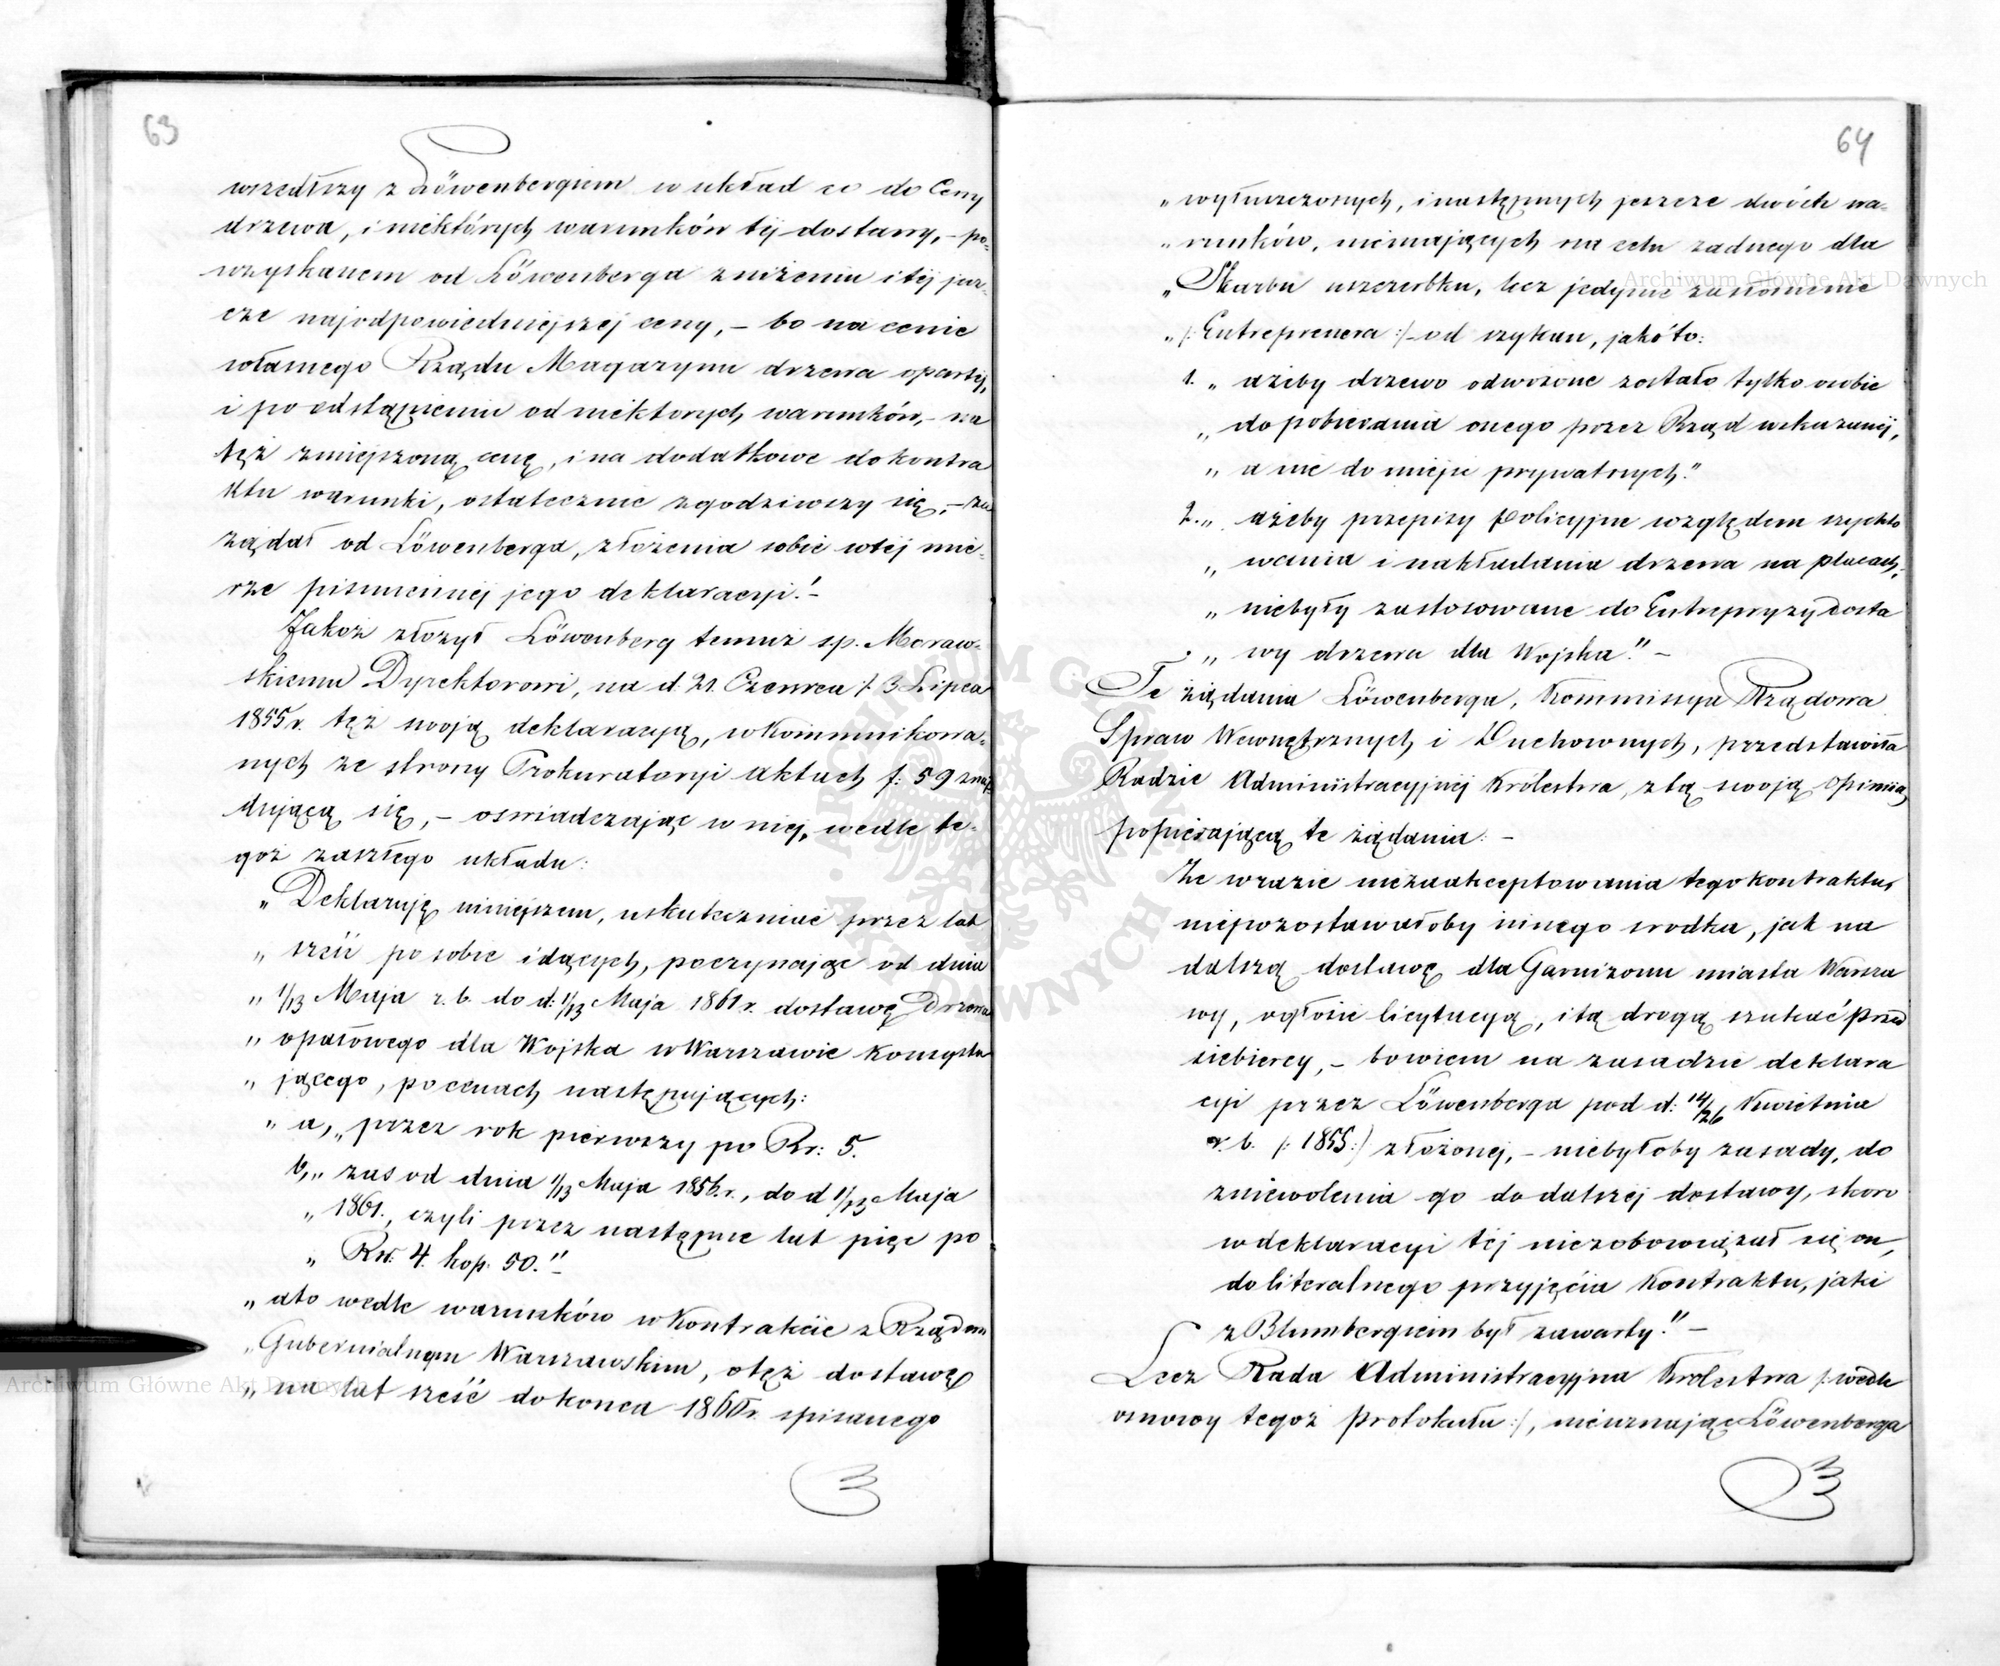 63
wszedłszy z Löwenbergiem w układ co do Ceny
drzewa, i niektórych warunków téj dostawy, – po-
wzyskanem od Löwenberga zniżeniu i téj jesz-
cze najodpowiedniejszéj ceny, – bo na cenie
własnego Rządu Magazynu drzewa opartéj,
i po odstąpieniu od niektorych warunków, – na
też zmiejszoną cenę, i na dodatkowe do kontra
ktu warunki, ostatecznie zgodziwszy się, – za
żądał od Löwenberga, złożenia sobie w téj mie-
rze piśmiennéj jego deklaracyi! –
Jakoż złożył Löwenberg temuż sp. Moraw-
skiemu Dyrektorowi, na d. 21. Czerwca /: 3 Lipca
1855 r. też swoją deklaracyą, w kommunikowa-
nych ze strony Prokuratoryi aktach f: 59 znaj-
dującą się, – oswiadczając w niej, wedle te-
goż zaszłego układu:
„ Deklaruję niniejszem, uskuteczniać przez lat
„ sześć po sobie idących, poczynając od dnia
„ 1/13 Maja r. b. do d: 1/13 Maja 1861 r. dostawę Drzewa
„ opałowego dla Wojska w Warszawie konsystu
„ jącego, po cenach następujących:
„ a, „ przez rok pierwszy po Rs: 5.
b, „ zas od dnia 1/13 Maja 1856. r., do d 1/13 Maja
„ 1861., czyli przez następne lat pięc po
„ Rs: 4. kop. 50." –
„ a to wedle warunków w Kontrakcie z Rządem
„ Gubernialnym Warszawskim, o też dostawę
„ na lat sześć do konca 1860 r. spisanego
64
„ wyłuszczonych, i następnych jeszcze dwóch wa-
„ runków, niemających na celu żadnego dla
„ Skarbu uszczerbku, lecz jedynie zasłonienie
„ /: Entreprenera :/ od szykan, jakóto:
1. „ ażeby drzewo odwożone zostało tylko osobie
„ do pobierania onego przez Rząd wskazanéj,
„ a nie do miejsc prywatnych."
2. „ ażeby przepisy policyjne względem szychto
„ wania i nakładania drzewa na placach,
„ niebyły zastosowane do Entrepryzy dosta
„ wy drzewa dla Wojska." –
Te żądania Löwenberga, Kommissya Rządowa
Spraw Wewnętrznych i Duchownych, przedstawiła
Radzie Administracyjnéj Królestwa, z tą swoją opiniią
popierającą te żądania: –
Że w razie niezaakceptowania tego kontraktu,
niepozostawałoby innego srodka, jak na
dalszą dostawę dla Garnizonu miasta Warsza
wy, ogłosic licytacyą, i tą drogą szukać przed
siebiercy, – bowiem na zasadzie deklara
cyi przez Löwenberga pod d: 14/26 Kwietnia
r. b. /: 1855 :/ złożonéj, – niebyłoby zasady, do
zniewolenia go do dalszéj dostawy, skoro
w deklaracyi téj niezobowiązał się on,
do literalnego przyjęcia kontraktu, jaki
z Blumbergiem był zawarty." –
Lecz Rada Administracyjna Krolestwa /: wedle
osnowy tegoż protokułu :/, nieuznając Löwenberga